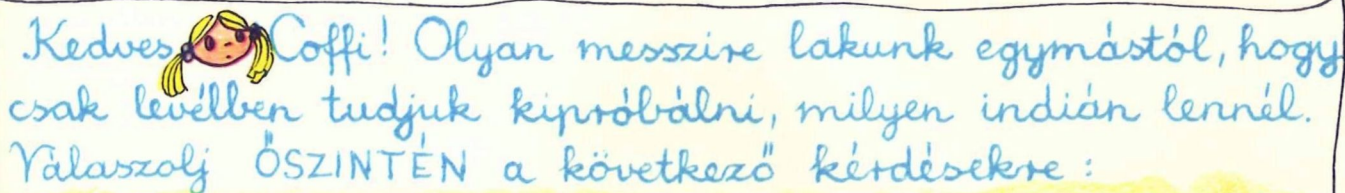 Kedves Coffi! Olyan messzire lakunk egymástól, hogy
csak levélben tudjuk kipróbálni, milyen indián lennél.
Válaszolj ŐSZINTÉN a következő kérdésekre: